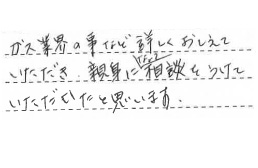 ガス業界の事など詳しくおしえて
いただき、親身に相談をうけて
いただいたと思います。